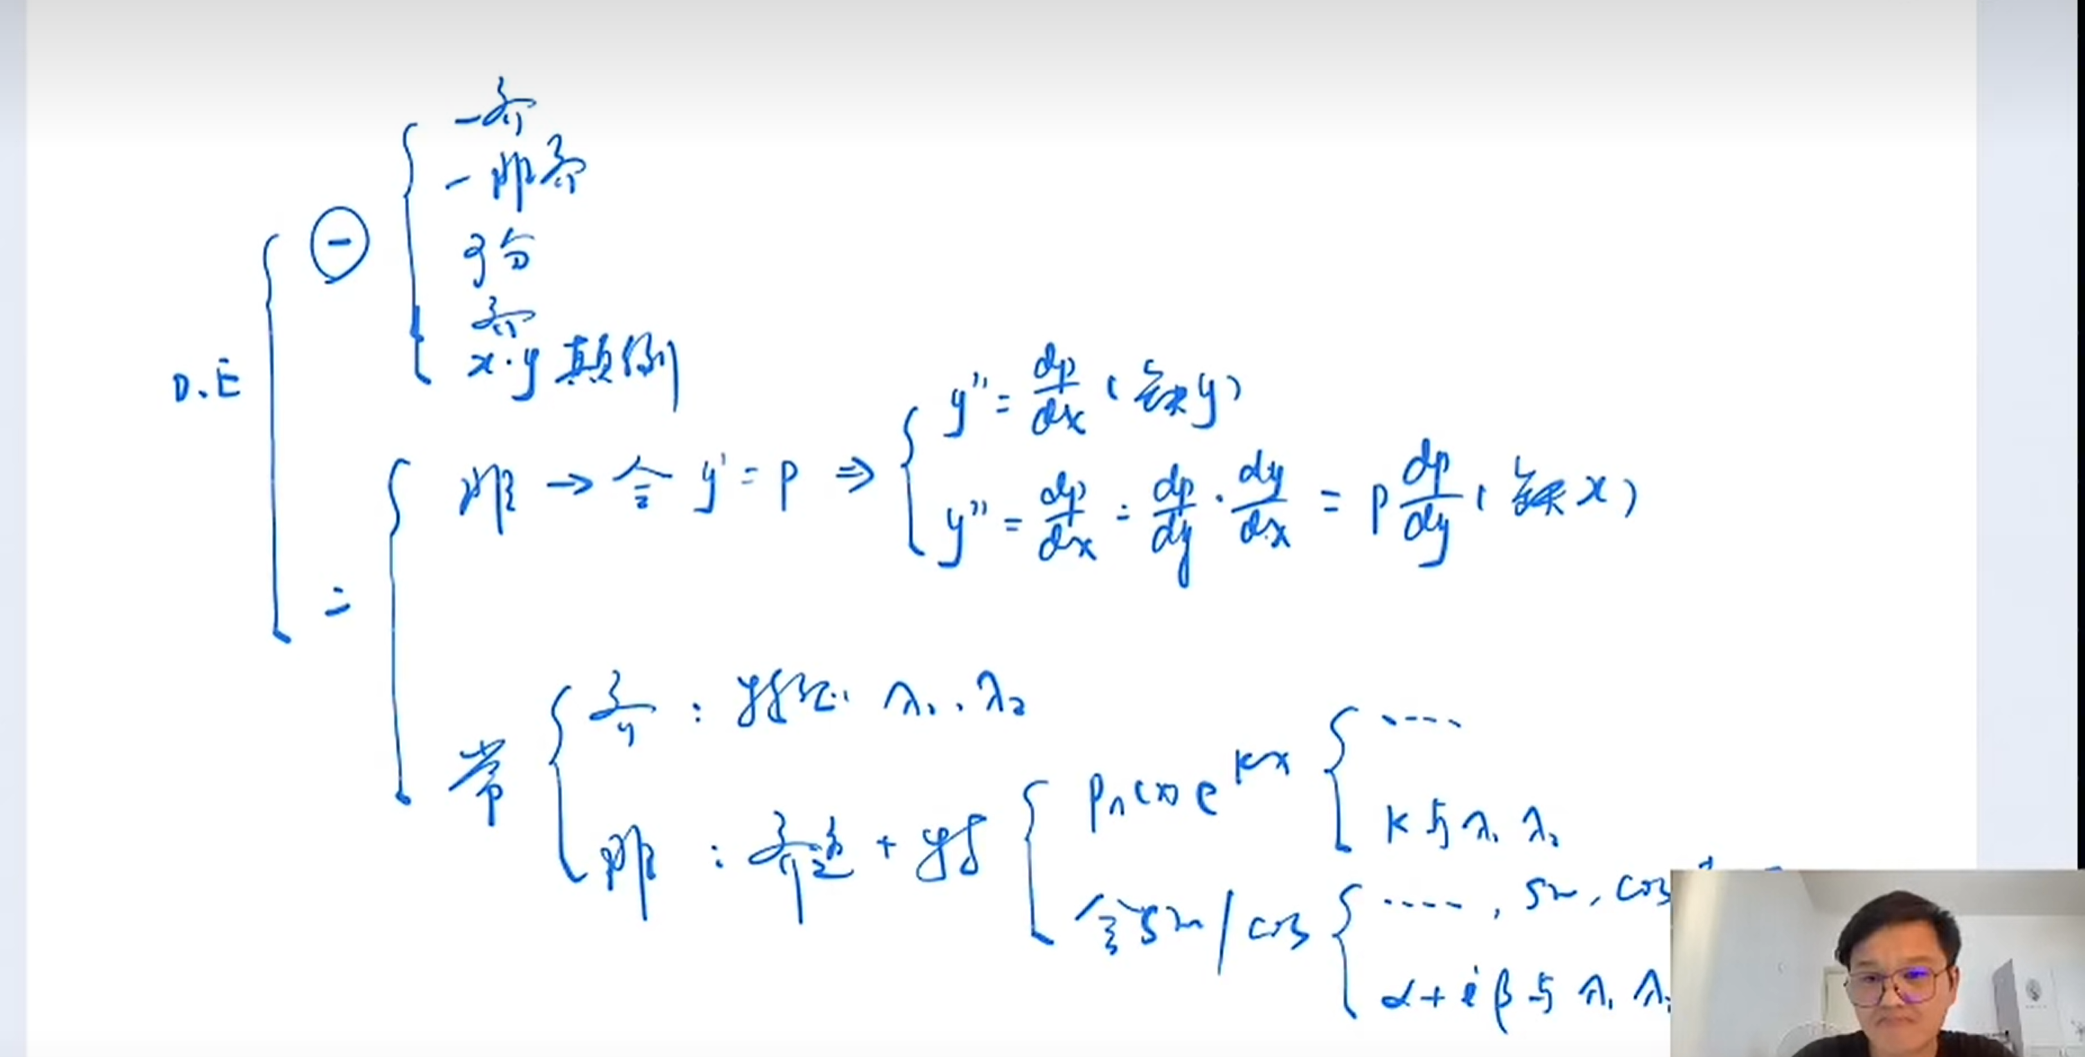 一齐
一非齐
可分
齐
x·y 颠倒
D.E
一
二
非 → 令 y' = p ⇒
y'' = dp/dx (缺y)
y'' = dp/dx = dp/dy · dy/dx = p dp/dy (缺x)
常
齐 : 特征 λ₁, λ₂
非 : 齐通 + 特
Pₙ(x)e^{kx}
....
k 与 λ₁ λ₂
含 sin / cos
...., sin, cos
α+iβ 与 λ₁ λ₂